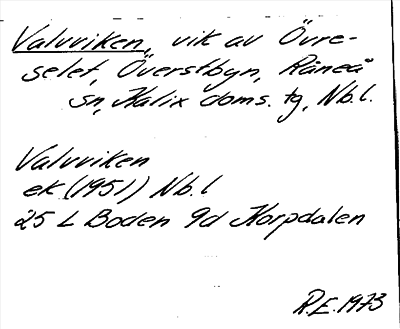 Valuviken, vik av Övre-
selet, Överstbyn, Råneå
sn, Kalix doms. tg, Nb.l.
Valuviken
ek (1951) Nb.l
25 L Boden 9d Korpdalen
R.E. 1973